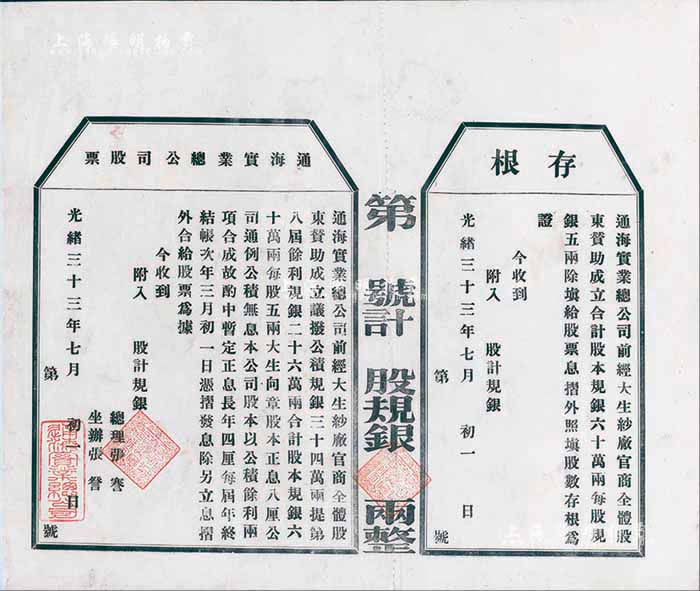 上海崇明拍賣
存根
通海實業總公司前經大生紗廠官商全體股
東贊助成立合計股本規銀六十萬兩每股規
銀五兩除塡給股票息摺外照塡股數存根爲
證
今收到
附入 股計規銀
光緒三十三年七月 初一 日
第 號
第 號計 股規銀 兩整
通海實業總公司股票
通海實業總公司前經大生紗廠官商全體股
東贊助成立議撥公積規銀三十四萬兩提第
八屆餘利規銀二十六萬兩合計股本規銀六
十萬兩每股五兩大生向章股本正息八厘公
司通例公積無息本公司股本以公積餘利兩
項合成故酌中暫定正息長年四厘每屆年終
結帳次年三月初一日憑摺發息除另立息摺
外合給股票爲據
今收到
附入 股計規銀
總理張謇
坐辦張詧
光緒三十三年七月 初一 日
第 號